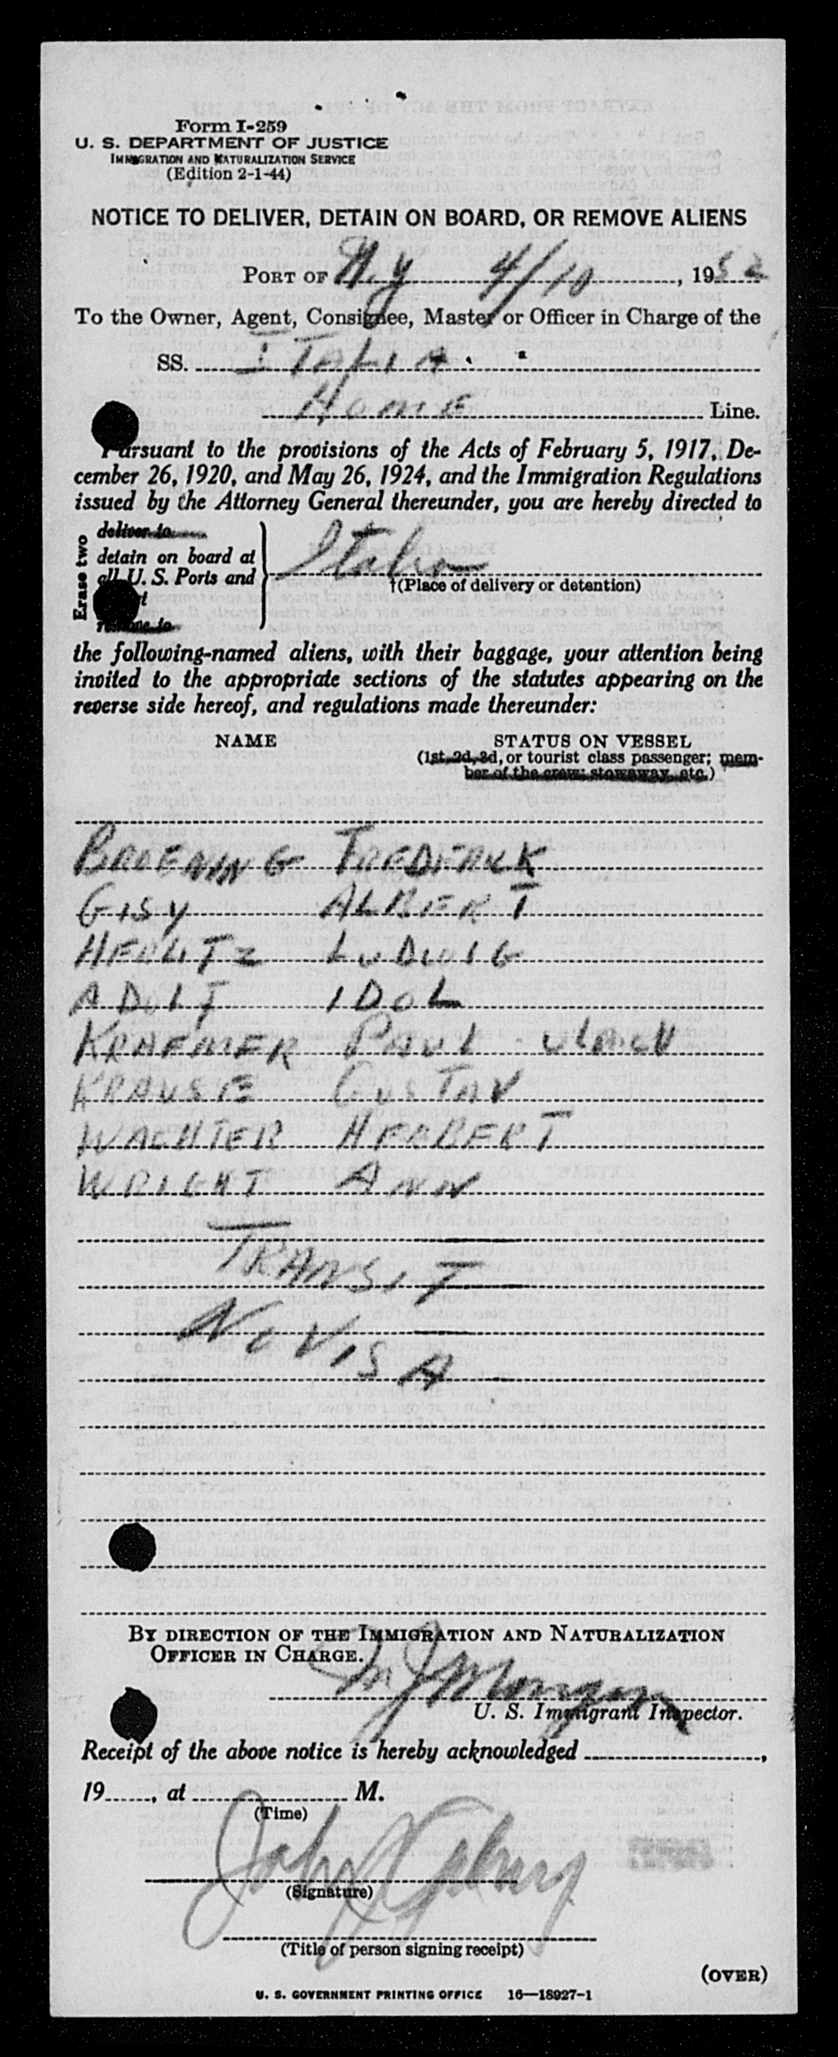 Form I-259
U. S. DEPARTMENT OF JUSTICE
IMMIGRATION AND NATURALIZATION SERVICE
(Edition 2-1-44)
NOTICE TO DELIVER, DETAIN ON BOARD, OR REMOVE ALIENS
PORT OF N.Y 4/10, 1952
To the Owner, Agent, Consignee, Master or Officer in Charge of the
SS. ITALIA
HOME Line.
Pursuant to the provisions of the Acts of February 5, 1917, De-
cember 26, 1920, and May 26, 1924, and the Immigration Regulations
issued by the Attorney General thereunder, you are hereby directed to
Erase two
deliver to
detain on board at
all U. S. Ports and
Italia
†(Place of delivery or detention)
remove to
the following-named aliens, with their baggage, your attention being
invited to the appropriate sections of the statutes appearing on the
reverse side hereof, and regulations made thereunder:
NAME STATUS ON VESSEL
(1st, 2d, 3d, or tourist class passenger; mem-
ber of the crew; stowaway, etc.)
BROENING FREDERICK
GISY ALBERT
HERLITZ LUDWIG
ADOLT IDOL
KRAEMER PAUL ULRICH
KRAUSE GUSTAV
WACHTER HERBERT
WRIGHT ANN
TRANSIT
NO VISA
BY DIRECTION OF THE IMMIGRATION AND NATURALIZATION
OFFICER IN CHARGE.
U. S. Immigrant Inspector.
Receipt of the above notice is hereby acknowledged ,
19 , at M.
(Time)
John
(Signature)
(Title of person signing receipt)
(OVER)
U. S. GOVERNMENT PRINTING OFFICE 16—18927-1